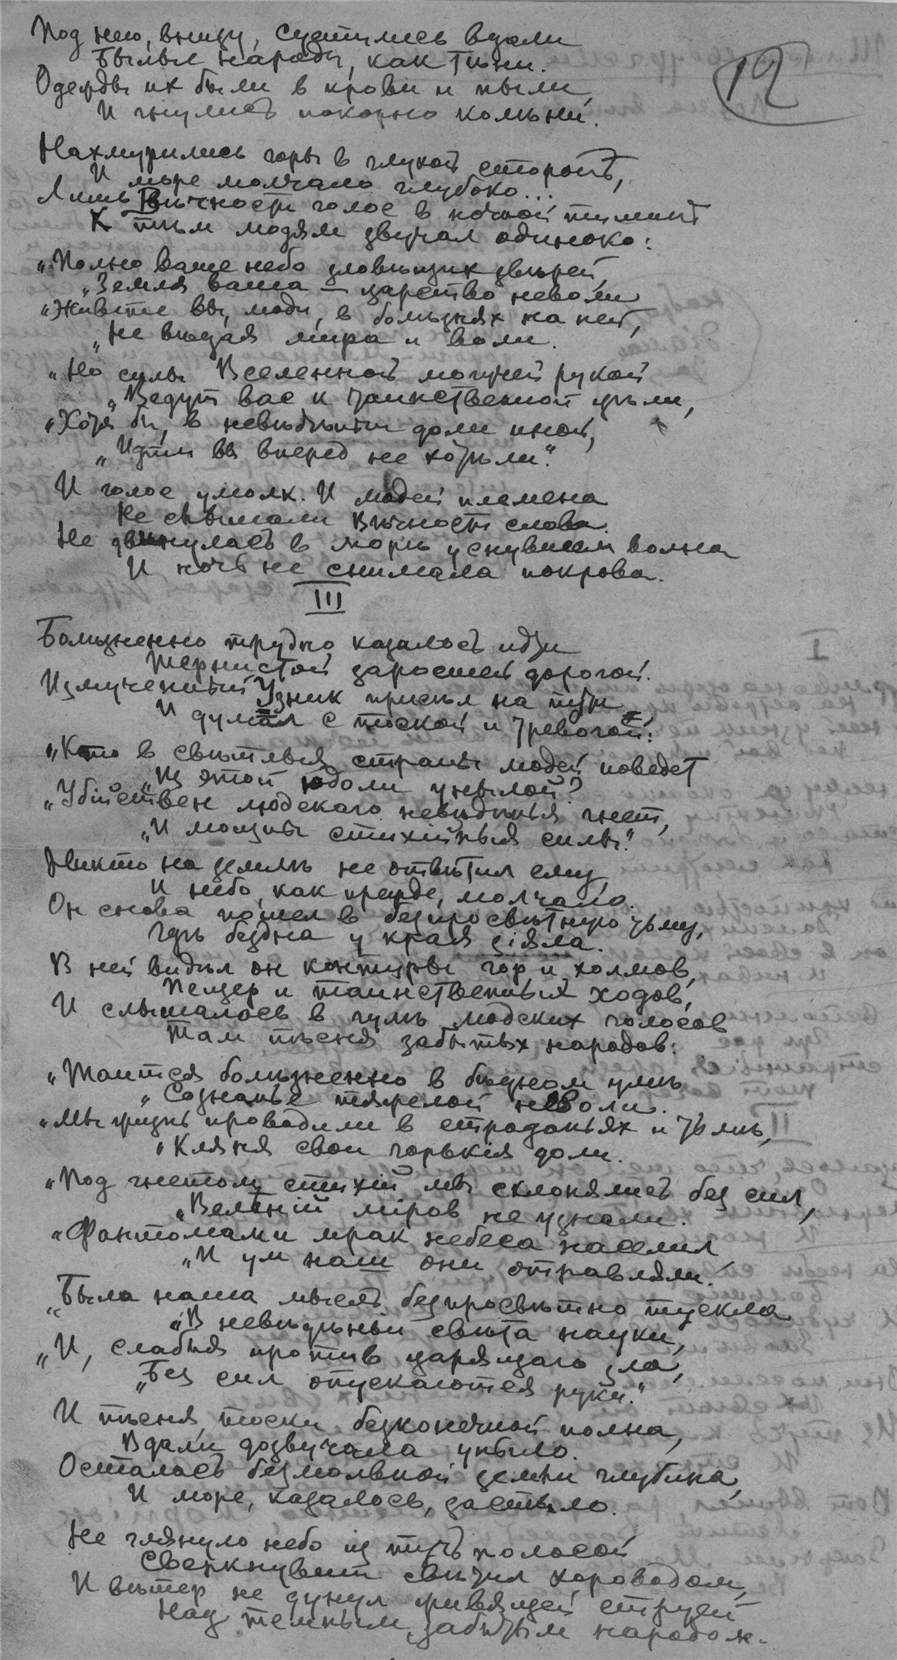 12
Под нею, внизу, суетились вдали
Былыя народы, как тѣни.
Одежды их были в крови и пыли,
И гнулись покорно колѣни.
Нахмурились горы в глухой сторонѣ,
И море молчало глубоко...
Лишь Вѣчности голос в ночной тишинѣ
К тѣм людям звучал одиноко:
„Полно ваше небо зловѣщих звѣрей,
„Земля ваша — царство неволи
„Живете вы, люди, в болѣзнях на ней,
„Не вѣдая мира и воли.
„Но силы Вселенной могучей рукой
„Ведут вас к таинственной цѣли,
„Хотя бы, в невѣдѣньи доли иной,
„Идти вы вперед не хотѣли".
И голос умолк. И людей племена
Не слышали Вѣчности слова.
Не двинулась в морѣ уснувшем волна
И ночь не снимала покрова.
III
Болѣзненно трудно казалось идти
Тернистой заросшей дорогой.
Измученный Узник присѣл на пути
И думал с тоской и тревогой:
„Кто в свѣтлыя страны людей поведет
„Из этой юдоли унылой?
„Убійствен людского невѣдѣнья гнет,
„И мощны стихійныя силы".
Никто на землѣ не отвѣтил ему,
И небо, как прежде, молчало.
Он снова пошел в безпросвѣтную тьму,
Гдѣ бездна у края зіяла.
В ней видѣл он контуры гор и холмов,
Пещер и таинственных ходов,
И слышалось в гулѣ людских голосов
Там пѣсня забытых народов:
„Таится болѣзненно в бѣдном умѣ
„Сознанье тяжелой неволи.
„Мы жизнь проводили в страданьях и тьмѣ,
„Кляня свои горькія доли.
„Под гнетом стихій мы склонялись без сил,
„Велѣній міров не узнали.
„Фантомами мрак небеса населил
„И ум наш они отравляли.
„Была наша мысль безпросвѣтно тускла
„В невѣдѣньи свѣта науки,
„И, слабыя против царящаго зла,
„Без сил опускаются руки".
И пѣсня, тоски безконечной полна,
Вдали дозвучала уныло.
Осталась безмолвной земли глубина,
И море, казалось, застыло.
Не глянуло небо из туч полосой
Сверкнувшим свѣтил хороводом,
И вѣтер не дунул живящей струей
Над темным, забытым народом.